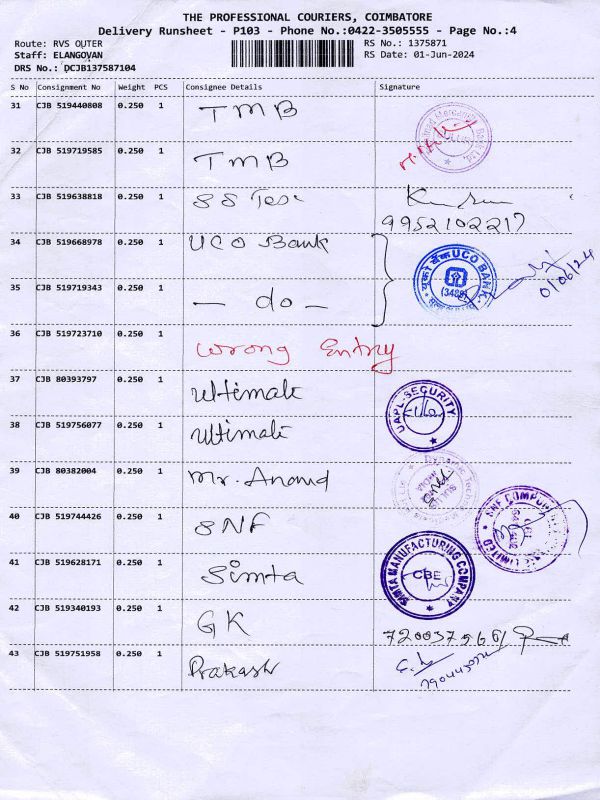 THE PROFESSIONAL COURIERS, COIMBATORE
Delivery Runsheet - P103 - Phone No.:0422-3505555 - Page No.:4
Route: RVS OUTER RS No.: 1375871
Staff: ELANGOVAN RS Date: 01-Jun-2024
DRS No.: DCJB137587104
S No Consignment No Weight PCS Consignee Details Signature
31 CJB 519440808 0.250 1 TMB
32 CJB 519719585 0.250 1 TMB
33 CJB 519638818 0.250 1 SS Tex
9952102217
34 CJB 519668978 0.250 1 UCO Bank
यूको बैंक UCO BANK
(3488)
01/06/24
35 CJB 519719343 0.250 1 — do —
36 CJB 519723710 0.250 1 wrong Entry
37 CJB 80393797 0.250 1 Ultimate
UAPL-SECURITY
38 CJB 519756077 0.250 1 Ultimate
39 CJB 80382004 0.250 1 Mr. Anand
40 CJB 519744426 0.250 1 SNF
41 CJB 519628171 0.250 1 Simta
SIMTA MANUFACTURING COMPANY
CBE
42 CJB 519340193 0.250 1 GK
43 CJB 519751958 0.250 1 Prakash